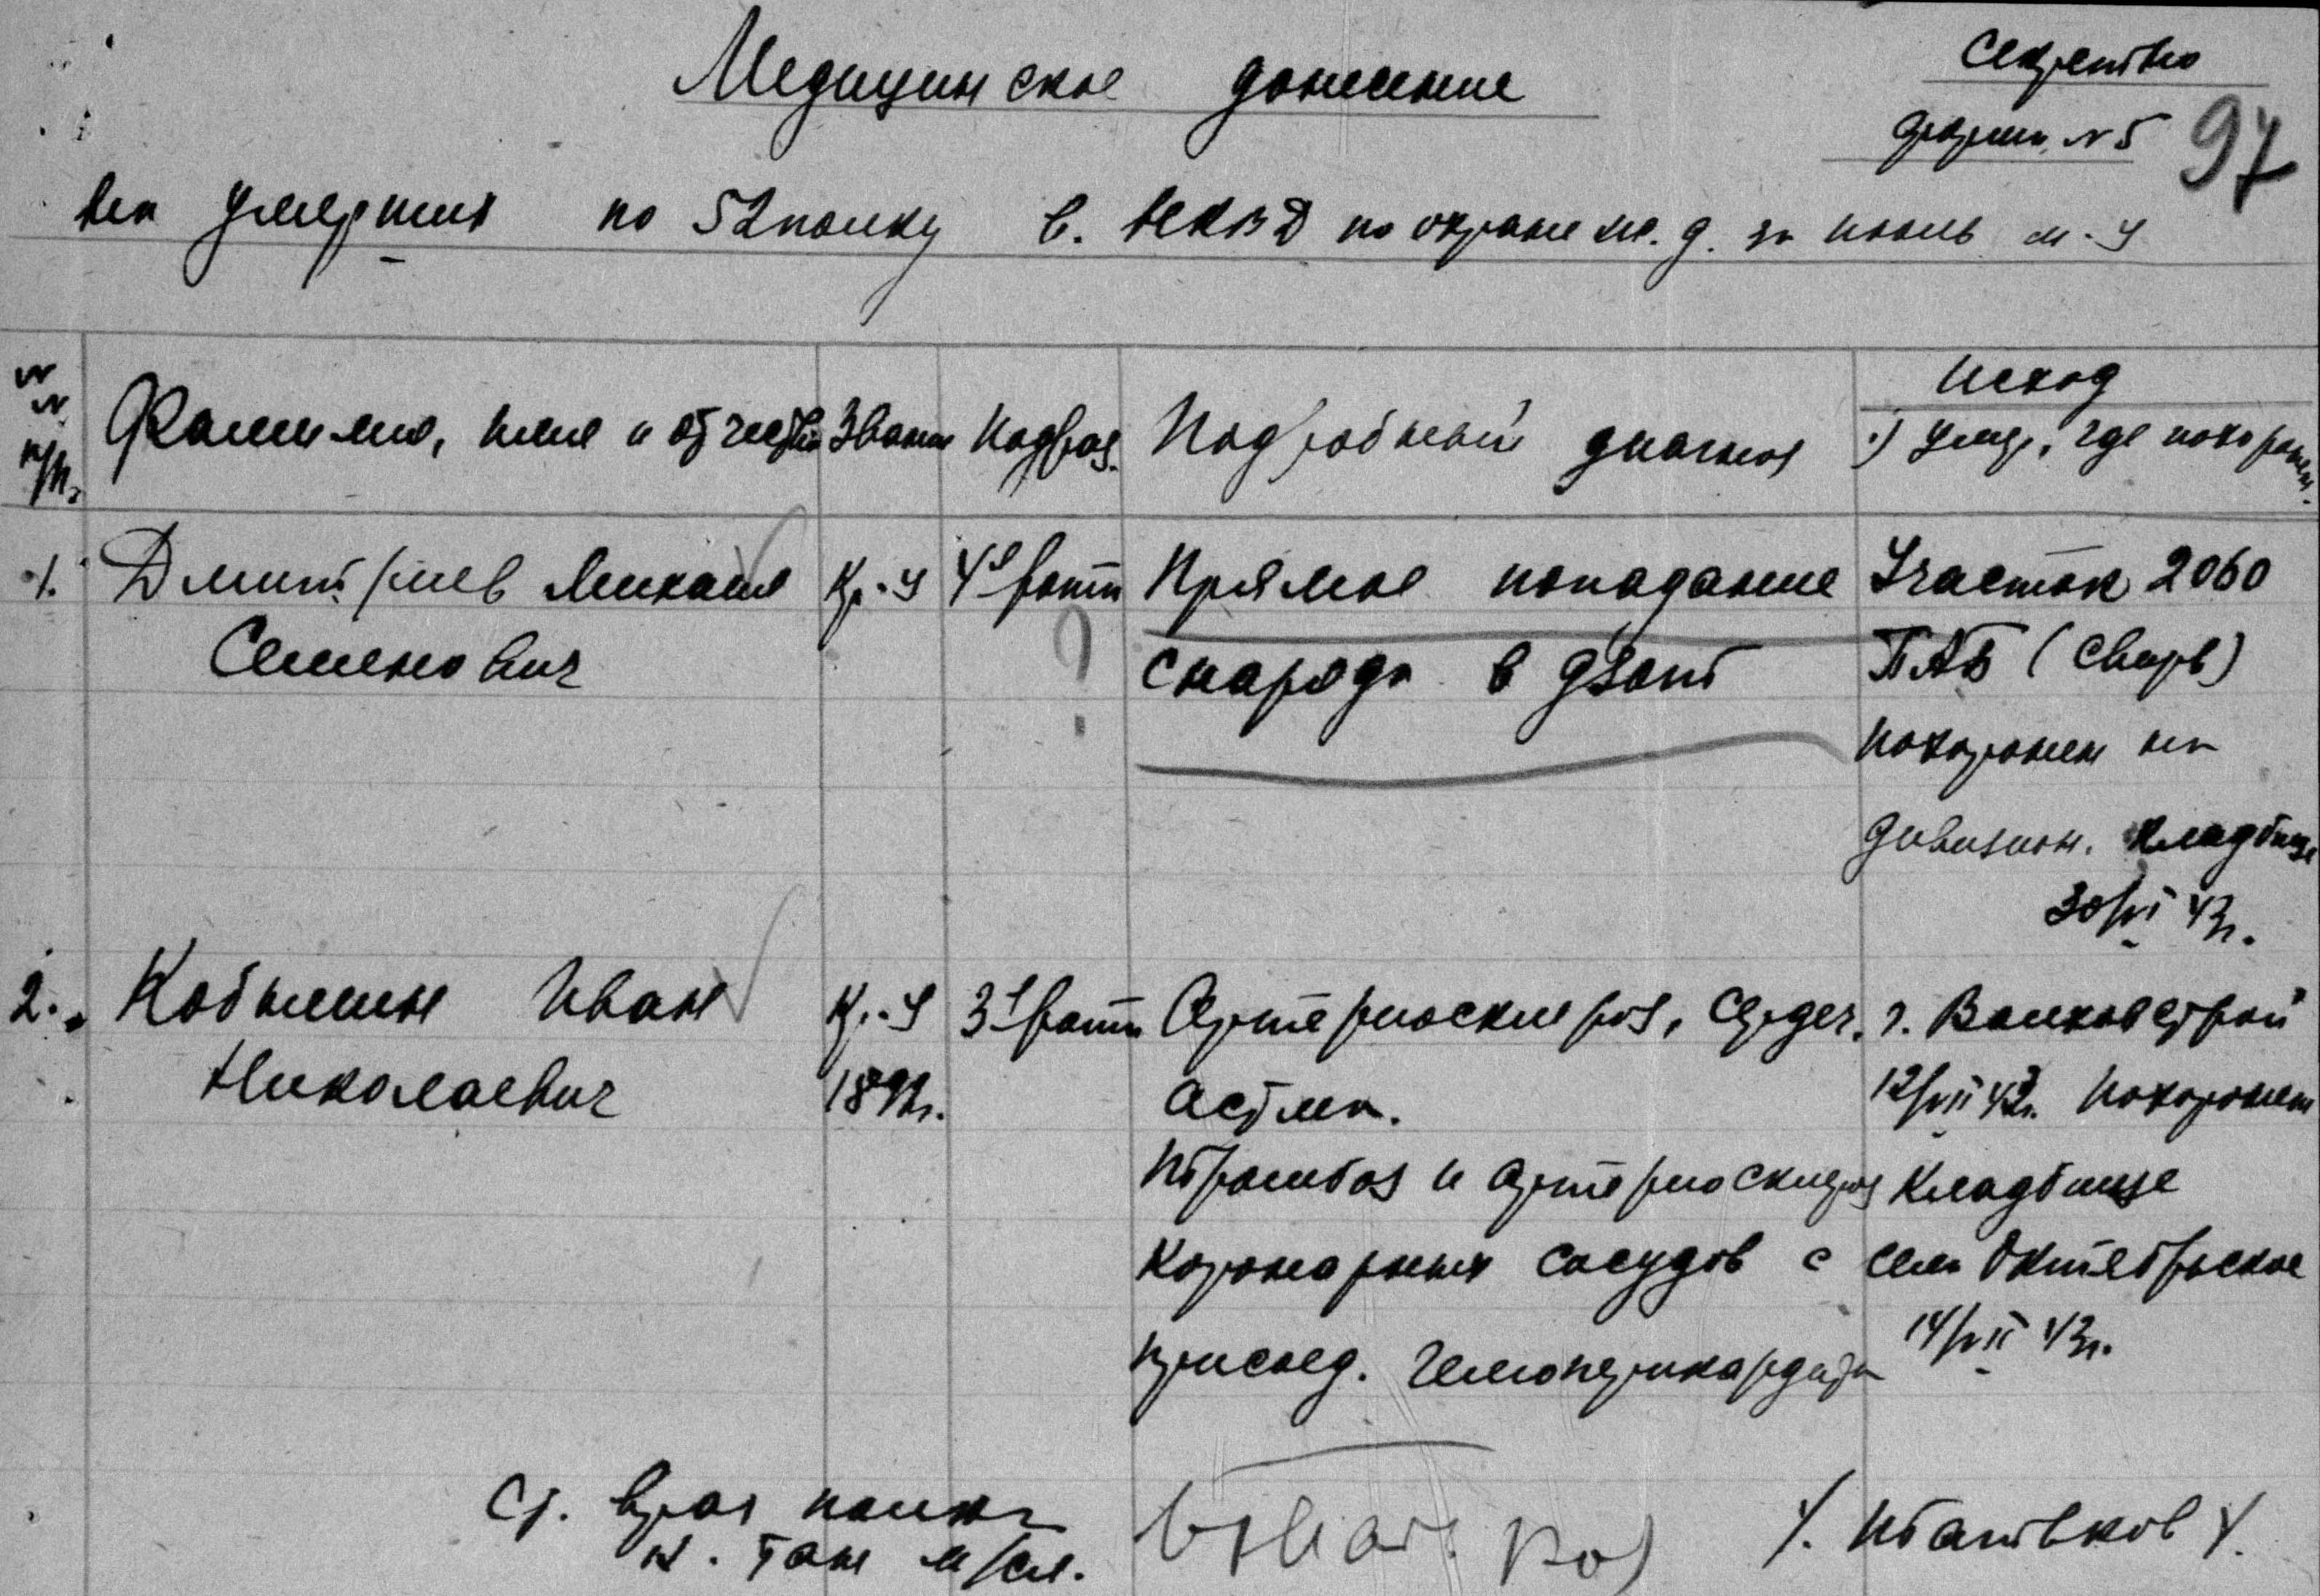 Секретно
Медицинское донесение
форма N 5
97
на умерших по 52 полку в. НКВД по охране ж. д. за июль м-ц
N N п/п.
Фамилия, имя и отчество
Звание
Подраз.
Подробный диагноз
Исход
1) Умер, где похоронен.
1. Дмитриев Михаил
Семенович
Кр-ц
4й роты
?
Прямое попадание
снаряда в дзот
Участок 2060
ПАБ (Свирь)
похоронен на
дивизион. кладбище
30/VI 43г.
2. Кобылин Иван
Николаевич
Кр-ц
1892г.
3й роты
Артериосклероз, сердеч.
астма.
Тромбоз и артериосклероз
коронарных сосудов с
присоед. гемоперикардита
г. Волховстрой
12/VII 43г. похоронен
кладбище
село Октябрьское
14/VII 43г.
Ст. врач полка
к-тан м/сл.